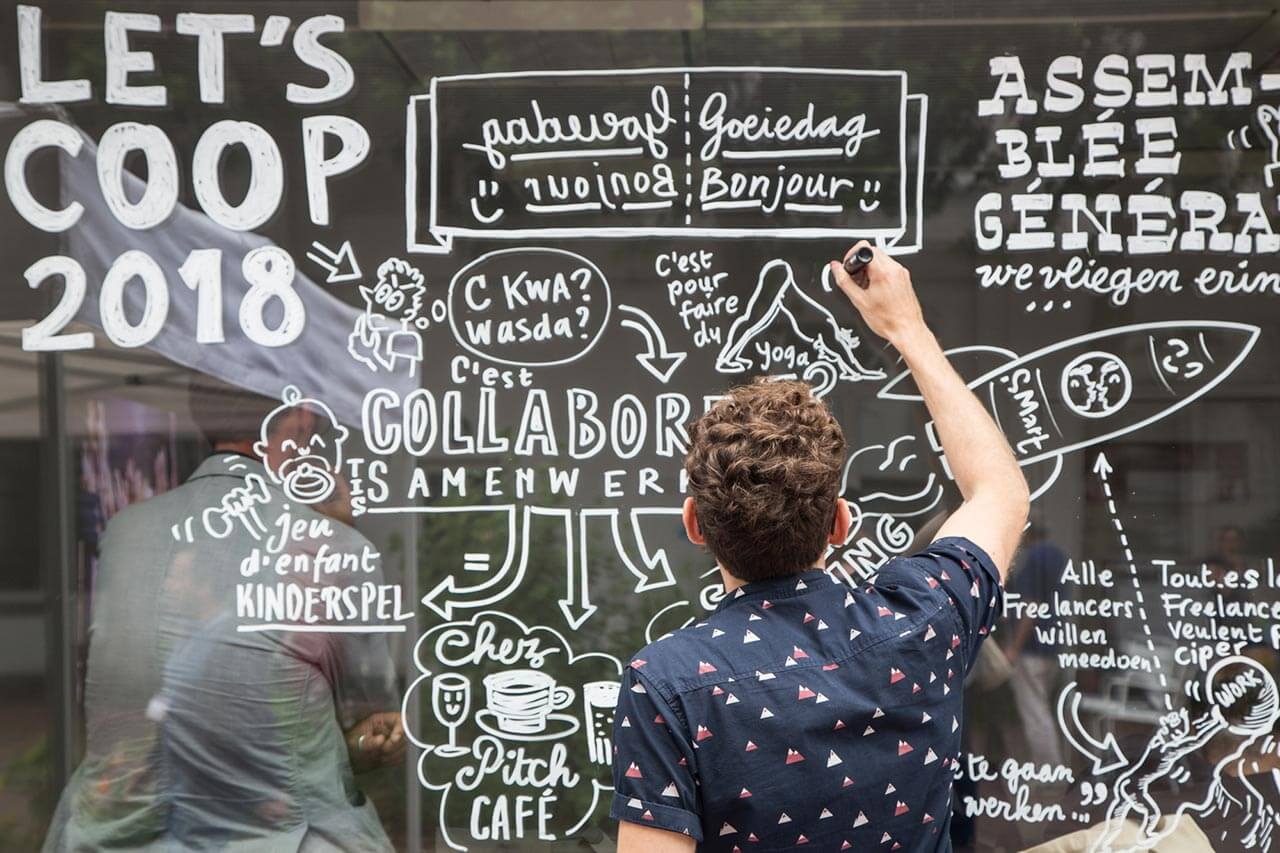 LET'S
COOP
2018
Goeiedag
Bonjour
Goeiedag
Bonjour
ASSEM-
BLÉE
GÉNÉRA
we vliegen erin
...
C KWA?
wasda?
c'est
pour
faire
du
yoga
C'est
COLLABOR
IS
SAMENWERK
=
jeu
d'enfant
KINDERSPEL
Chez
Pitch
CAFÉ
ING
SMart
Alle
Freelancers
willen
meedoen
Tout.e.s l
Freelance
veulent p
ciper
WORK
te gaan
werken..."